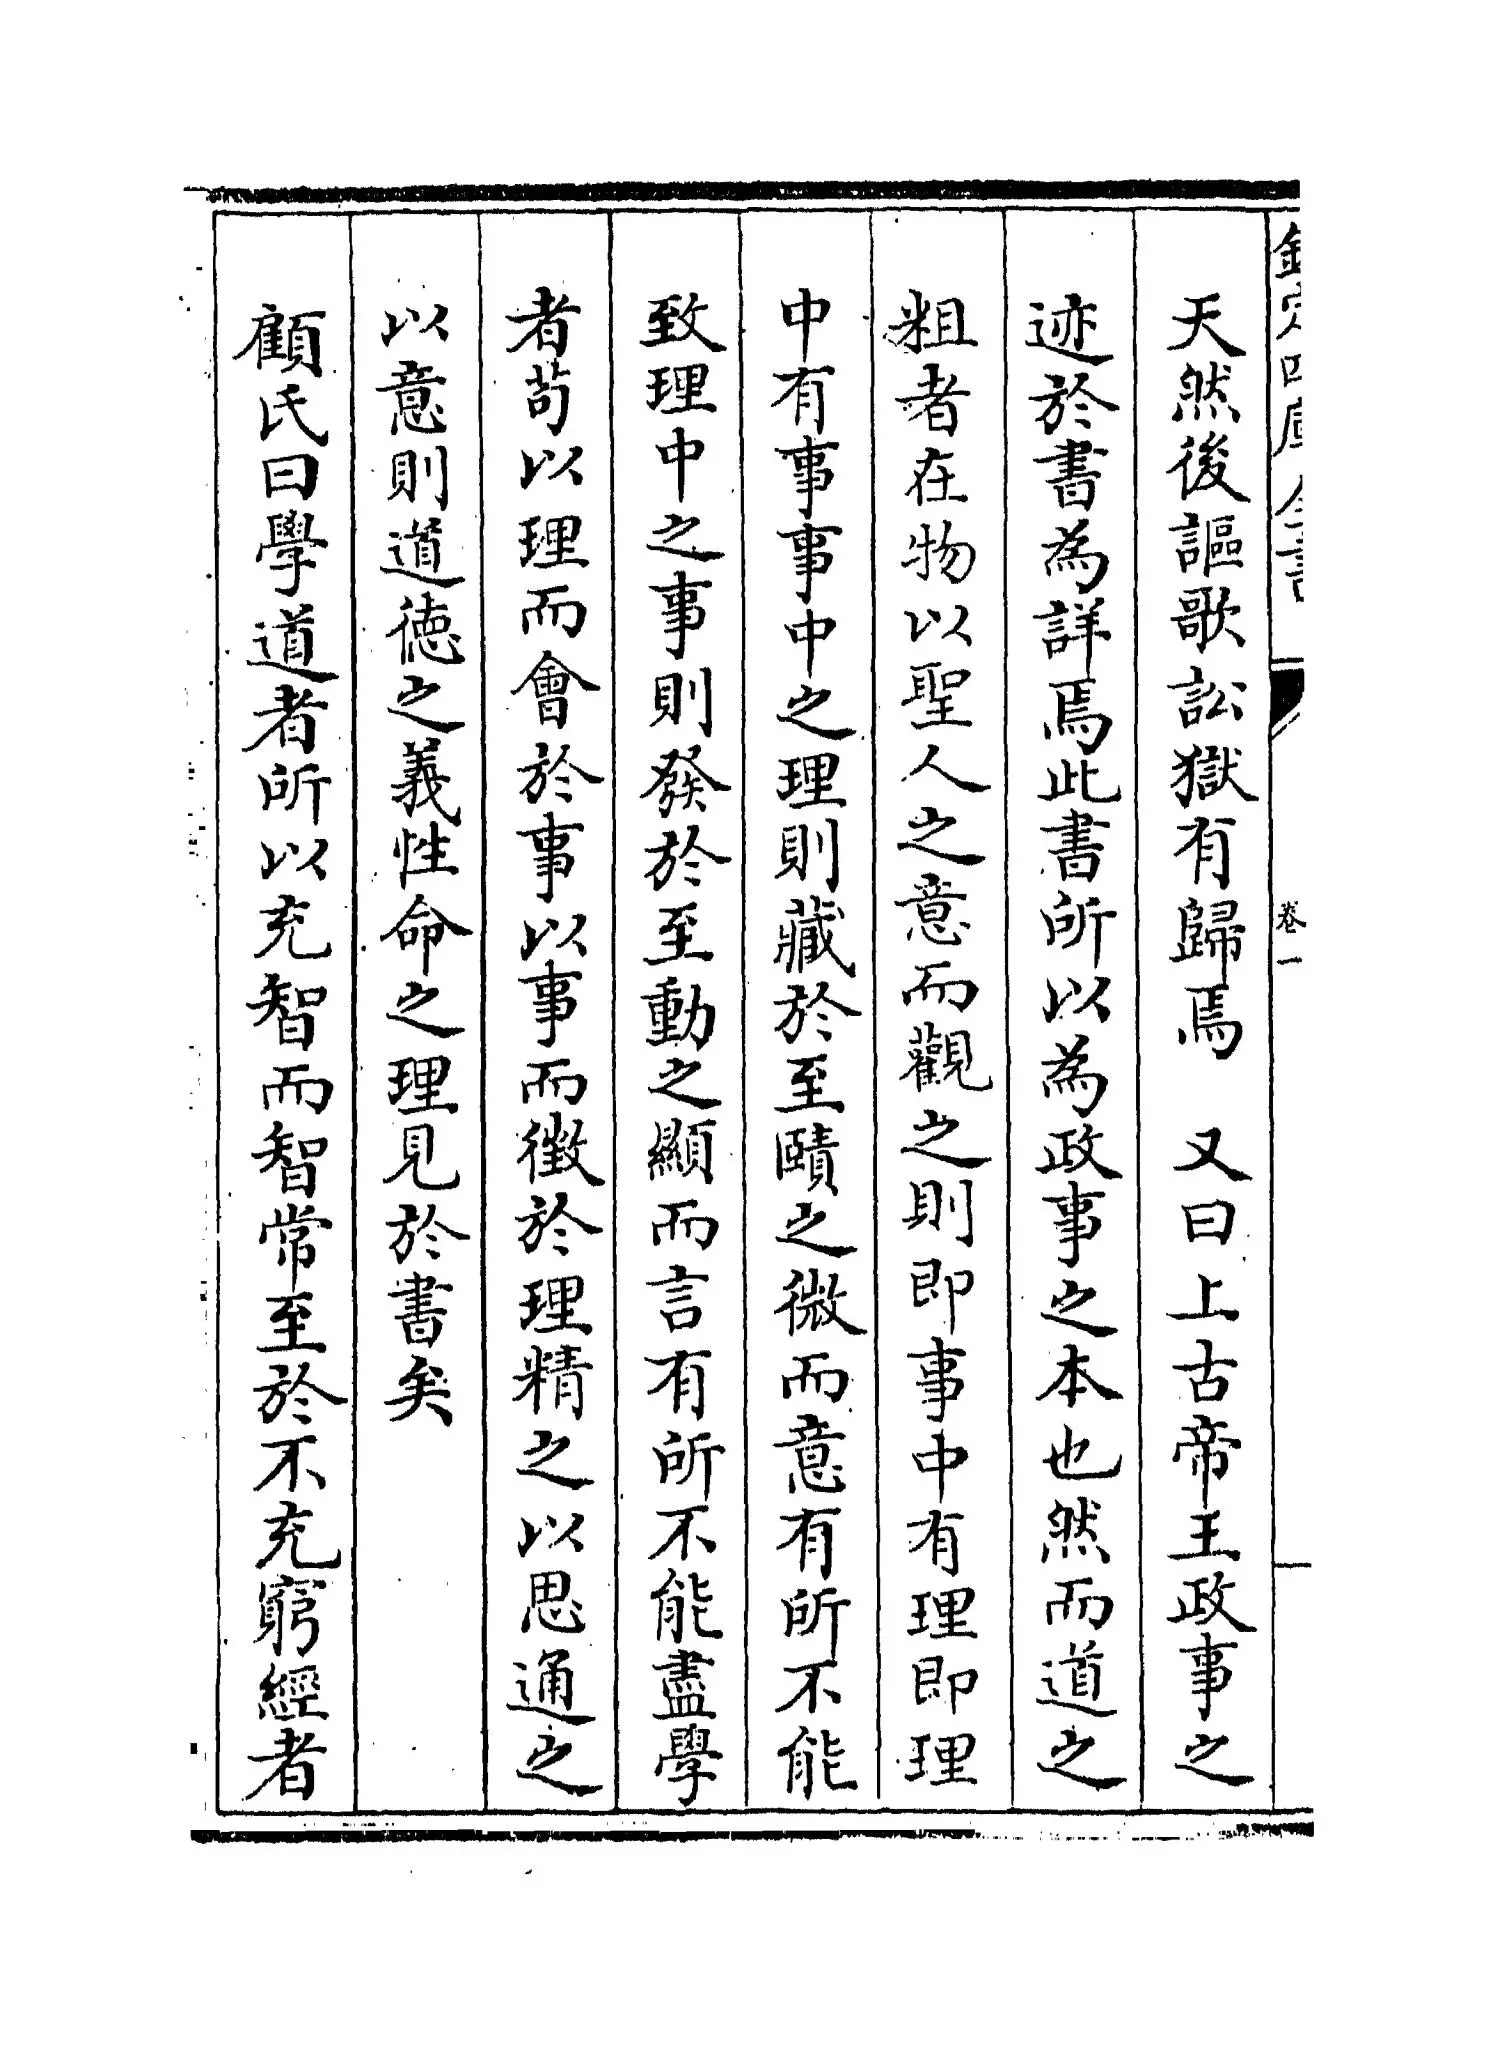 欽定四庫全書
卷一
天然後謳歌訟獄有歸焉　又曰上古帝王政事之
迹於書為詳焉此書所以為政事之本也然而道之
粗者在物以聖人之意而觀之則即事中有理即理
中有事事中之理則藏於至賾之微而意有所不能
致理中之事則發於至動之顯而言有所不能盡學
者茍以理而會於事以事而徵於理精之以思通之
以意則道德之義性命之理見於書矣
顧氏曰學道者所以充智而智常至於不充窮經者